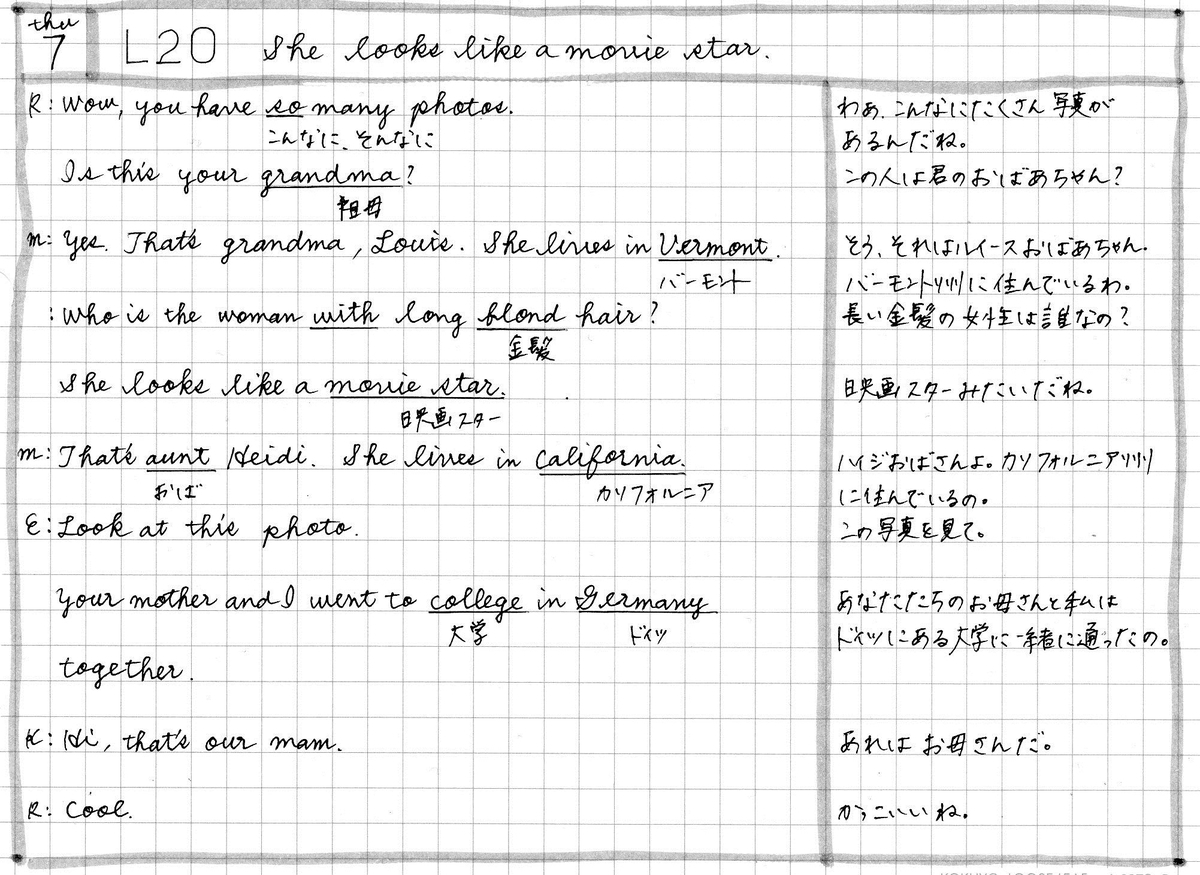 thu
7
L20 She looks like a movie star.
R: Wow, you have so many photos.
わぁ、こんなにたくさん写真が
こんなに、そんなに
あるんだね。
Is this your grandma?
この人は君のおばあちゃん?
祖母
m: Yes. That's grandma, Louis. She lives in Vermont.
そう、それはルイースおばあちゃん.
バーモント
バーモント州に住んでいるわ。
: Who is the woman with long blond hair?
長い金髪の女性は誰なの?
金髪
She looks like a movie star.
映画スターみたいだね。
映画スター
m: That's aunt Heidi. She lives in California.
ハイジおばさんよ。カリフォルニア州
おば
カリフォルニア
に住んでいるの。
E: Look at this photo.
この写真を見て。
Your mother and I went to college in Germany
あなたたちのお母さんと私は
大学
ドイツ
ドイツにある大学に一緒に通ったの。
together.
K: Hi, that's our mam.
あれは お母さんだ。
R: Cool.
かっこいいね。